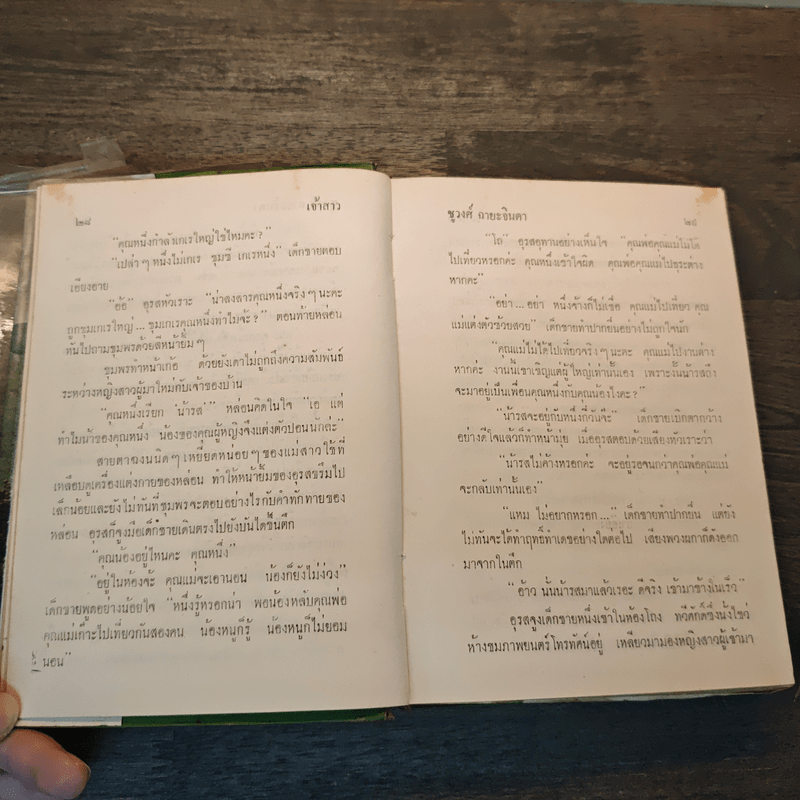 ๒๘
เจ้าสาว
"คุณหนึ่งกำลังเกเรใหญ่ใช่ไหมคะ?"
"เปล่า ๆ หนึ่งไม่เกเร ชุมซี เกเรหนึ่ง" เด็กชายตอบ
เอียงอาย
"อ้อ" อุรสหัวเราะ "น่าสงสารคุณหนึ่งจริง ๆ นะคะ
ถูกชุมเกเรใหญ่... ชุมเกเรคุณหนึ่งทำไมจ๊ะ?" ตอนท้ายหล่อน
หันไปถามชุมพรด้วยสีหน้ายิ้ม ๆ
ชุมพรทำหน้าเก้อ ด้วยยังเดาไม่ถูกถึงความสัมพันธ์
ระหว่างหญิงสาวผู้มาใหม่กับเจ้าของบ้าน
"คุณหนึ่งเรียก 'น้ารส'" หล่อนคิดในใจ "เอ แต่
ทำไมน้าของคุณหนึ่ง น้องของคุณผู้หญิงจึงแต่งตัวปอนนักล่ะ"
สายตาฉงนนิด ๆ เหยียดหน่อย ๆ ของแม่สาวใช้ที่
เหลือบดูเครื่องแต่งกายของหล่อน ทำให้หน้ายิ้มของอุรสขรึมไป
เล็กน้อยและยังไม่ทันที่ชุมพรจะตอบอย่างไรกับคำทักทายของ
หล่อน อุรสก็จูงมือเด็กชายเดินตรงไปยังบันไดขึ้นตึก
"คุณน้องอยู่ไหนคะ คุณหนึ่ง"
"อยู่ในห้องจ้ะ คุณแม่จะเอานอน น้องก็ยังไม่ง่วง"
เด็กชายพูดอย่างน้อยใจ "หนึ่งรู้หรอกน่า พอน้องหลับคุณพ่อ
คุณแม่เกาะไปเที่ยวกันสองคน น้องหนูก็รู้ น้องหนูก็ไม่ยอม
นอน"
ชูวงศ์ ฉายะจินดา
๒๙
"โถ" อุรสอุทานอย่างเห็นใจ "คุณพ่อคุณแม่ไม่ได้
ไปเที่ยวหรอกค่ะ คุณหนึ่งเข้าใจผิด คุณพ่อคุณแม่ไปธุระต่าง
หากค่ะ"
"อย่า... อย่า หนึ่งจ้างก็ไม่เชื่อ คุณแม่ไปเที่ยว คุณ
แม่แต่งตัวซ้วยสวย" เด็กชายทำปากยื่นอย่างไม่ถูกใจนัก
"คุณแม่ไม่ได้ไปเที่ยวจริง ๆ นะคะ คุณแม่ไปงานต่าง
หากค่ะ งานนี้เขาเชิญแต่ผู้ใหญ่เท่านั้นเอง เพราะงั้นน้ารสถึง
จะมาอยู่เป็นเพื่อนคุณหนึ่งกับคุณน้องไงคะ?"
"น้ารสจะอยู่กับหนึ่งกี่วันจ๊ะ" เด็กชายเบิกตากว้าง
อย่างดีใจแล้วก็ทำหน้ามุ่ย เมื่ออุรสตอบด้วยเสียงหัวเราะว่า
"น้ารสไม่ค้างหรอกค่ะ จะอยู่รอจนกว่าคุณพ่อคุณแม่
จะกลับเท่านั้นเอง"
"แหม ไม่อยากหรอก..." เด็กชายทำปากยื่น แต่ยัง
ไม่ทันจะได้ทำฤทธิ์ทำเดชอย่างใดต่อไป เสียงพวงผกาก็ดังออก
มาจากในตึก
"อ้าว นั่นน้ารสมาแล้วเรอะ ดีจริง เข้ามาข้างในเร็ว"
อุรสจูงเด็กชายหนึ่งเข้าในห้องโถง ทวีศักดิ์ซึ่งนั่งไขว่
ห้างชมภาพยนตร์โทรทัศน์อยู่ เหลียวมามองหญิงสาวผู้เข้ามา